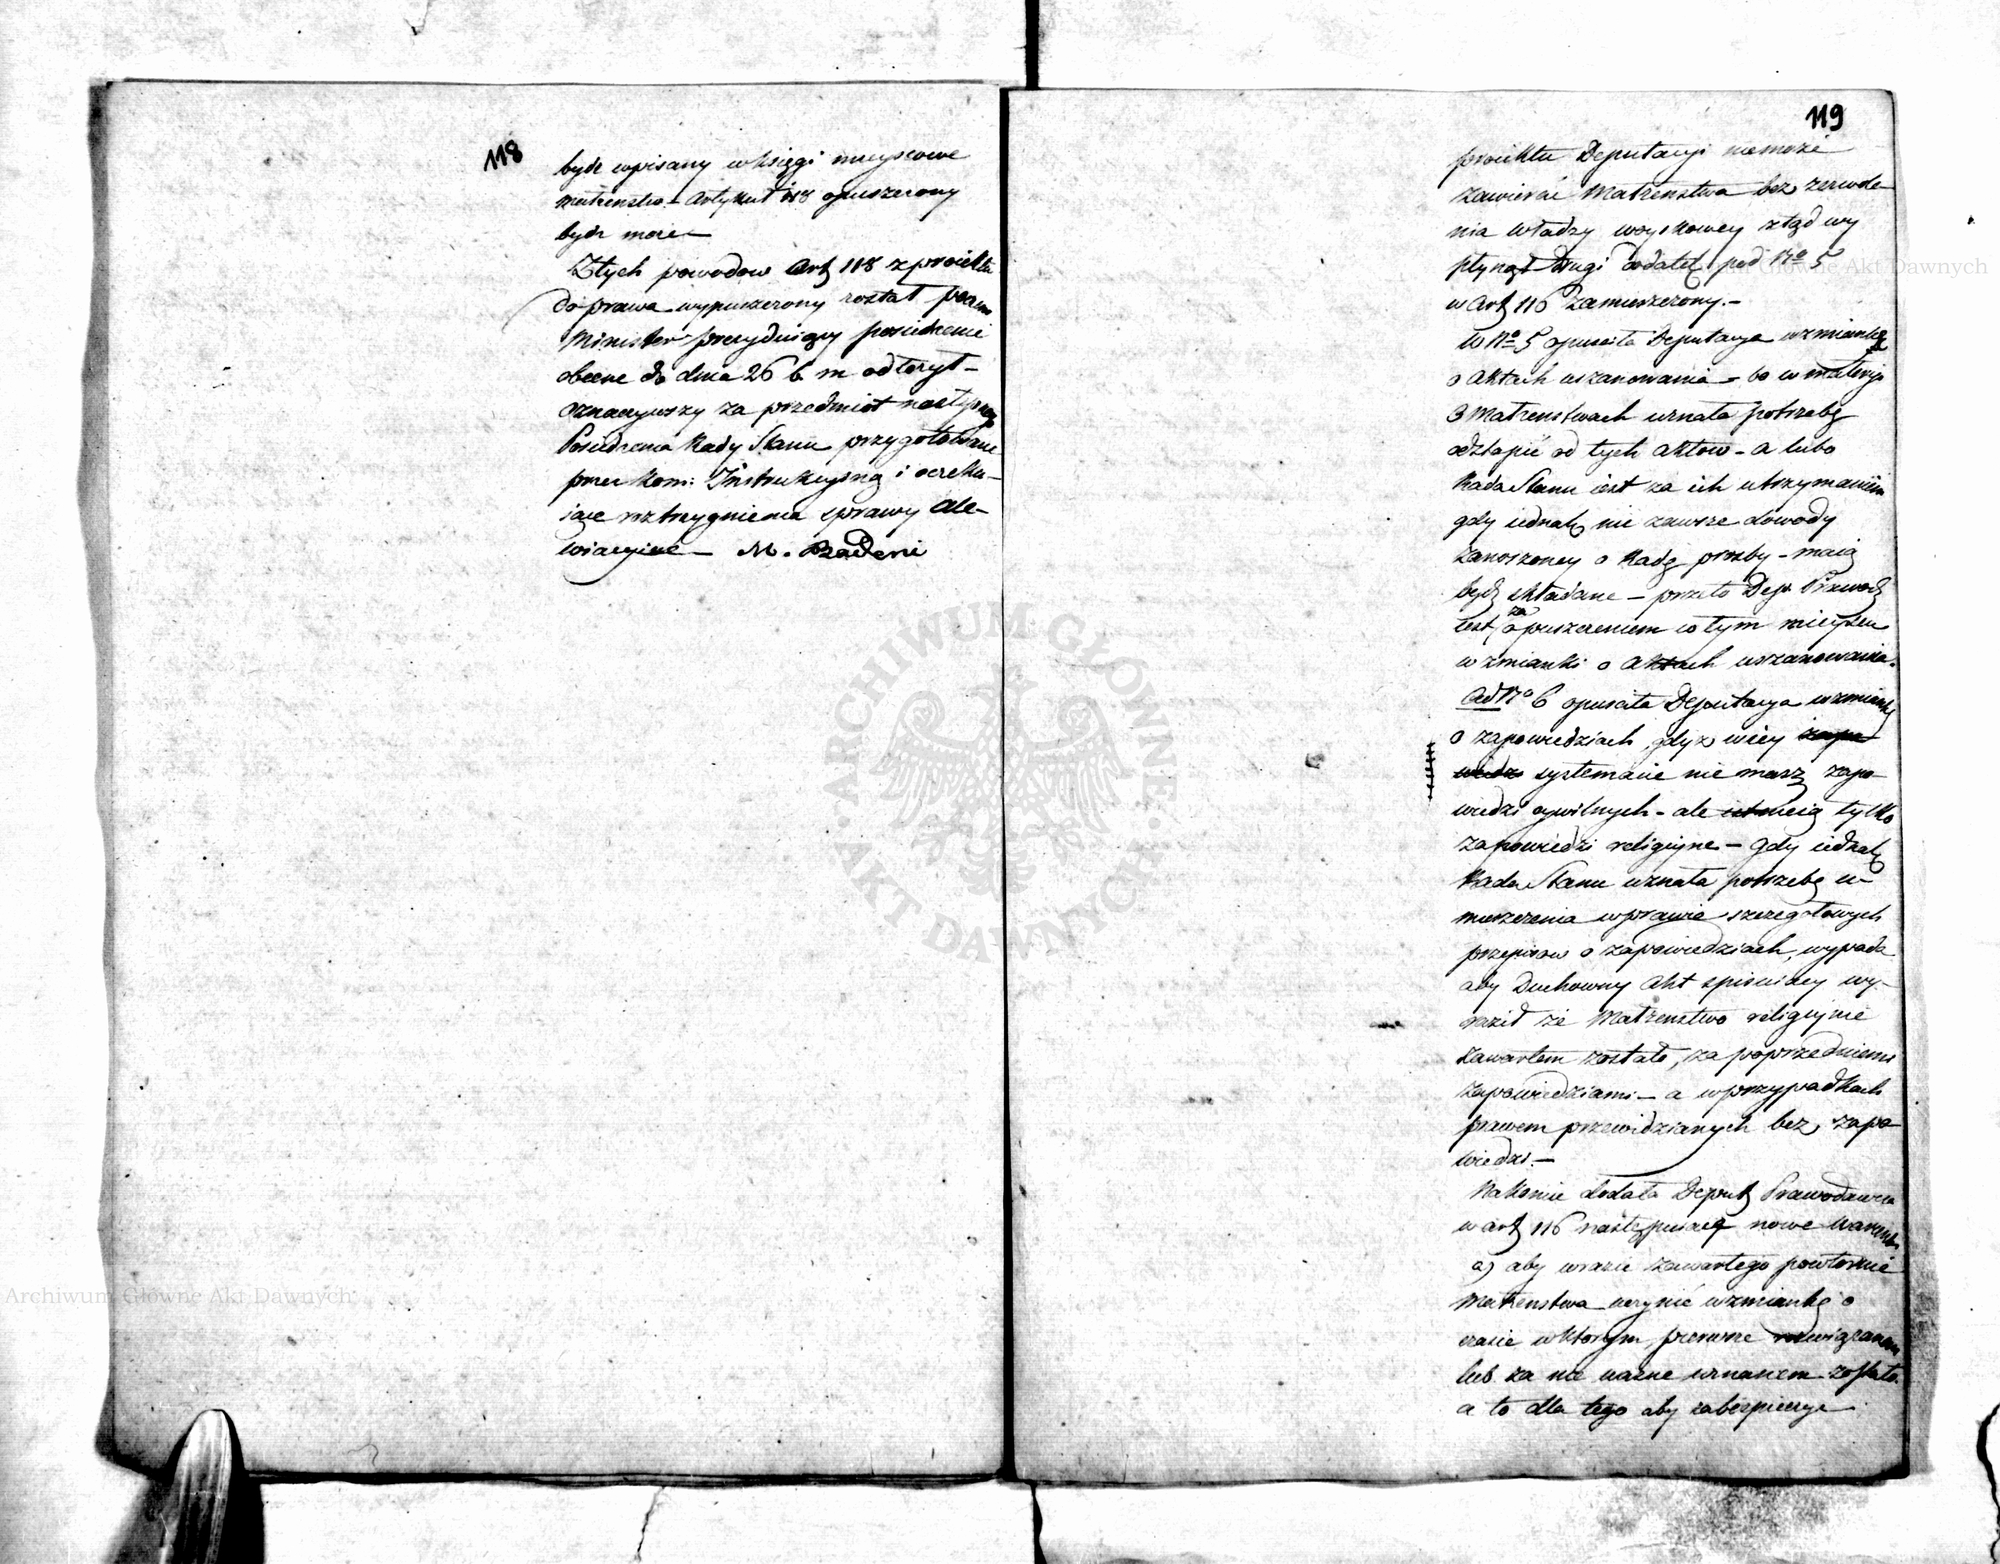 118
bydź wpisany w księgi mieyscowe
małżeństw. – Artykuł 118 opuszczony
bydź może –
Z tych powodow Art 118 z proiektu
do prawa wypuszczony został poczem
Minister prezyduiący posiedzenie
obecne do dnia 26 b. m odłożył –
oznaczywszy za przedmiot następnego
Posiedzenia Rady Stanu przygotowane
przez Kom: Instrukcyjną i oczeku-
iące roztrzygnienia sprawy
M. Badeni
119
proiektu Deputacyi niemoże
zawierać Małżeństwa bez zezwole-
nia władzy woyskowey ztąd wy
płynął drugi dodatek pod No 5
w Art 116 zamieszczony. –
W No 5 opuściła Deputacya wzmiankę
o Aktach uszanowania – bo w materyi
o Małżeństwach uznała potrzebę
odstąpić od tych Aktow – a lubo
Rada Stanu iest za ich utrzymaniem
gdy iednak nie zawsze dowody
zanoszoney o Radę prozby – maią
bydź składane – przeto Dep. Prawod
iest za opuszczeniem w tym mieyscu
wzmianki o Aktach uszanowania.
Ad No 6 opuściła Deputacya wzmiankę
o zapowiedziach, gdyż w iey zapo
wiedz systemacie nie masz zapo-
wiedzi cywilnych – ale istnieią tylko
zapowiedzi religijne – gdy iednak
Rada Stanu uznała potrzebę u-
mieszczenia w prawie szczegołowych
przepisow o zapowiedziach, wypada
aby Duchowny Akt spisuiący wy-
raził że Małżeństwo religijnie
zawartem zostało, za poprzedniemi
zapowiedziami – a w przypadkach
prawem przewidzianych bez zapo-
wiedzi. –
Nakoniec dodała Deput Prawodawcza
w art 116 następuiące nowe warunki
a) aby w razie zawartego powtornie
Małżeństwa uczynić wzmiankę o
czasie w ktorym pierwsze rozwiązanem
lub za nie ważne uznanem zostało.
a to dla tego aby zabezpieczyć
Archiwum Główne Akt Dawnych
Archiwum Główne Akt Dawnych
ARCHIWUM GŁÓWNE AKT DAWNYCH